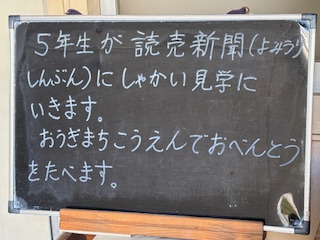 ５年生が 読売新聞(よみうり
しんぶん)にしゃかい見学に
いきます。
おうぎまちこうえんでおべんとう
をたべます。